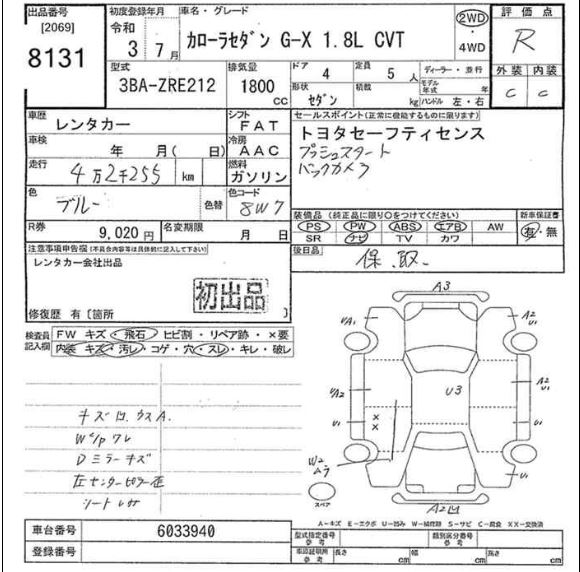 出品番号 初度登録年月 車名・グレード 2WD 評価点
[2069] 令和 カローラセダン G-X 1.8L CVT ・ R
8131 3年 7月 4WD 外装 内装
型式 排気量 ドア 4 定員 5人 ディーラー・並行 C C
3BA-ZRE212 1800cc 形状 セダン 積載 kg モデル年式 年 ハンドル 左・右
車歴 レンタカー シフト FAT セールスポイント(正常に機能するものに限ります)
車検 年 月( 日) 冷房 AAC トヨタセーフティセンス
走行 4万2千255 km 燃料 ガソリン プッシュスタート
色 ブルー 色替 色コード 8W7 バックカメラ
R券 9,020円 名変期限 月 日 装備品(純正品に限り○をつけてください) 新車保証書
PS PW ABS エアB AW 有・無
SR ナビ TV カワ
注意事項申告欄(不具合内容等は具体的に記入して下さい) 後日品
レンタカー会社出品 保、取、
初出品
修復歴 有 [箇所 ]
検査員記入欄 FW キズ・飛石・ヒビ割・リペア跡・×要
内装 キズ・汚レ・コゲ・穴・スレ・キレ・破レ
A3
UA1 A2 U1
UA2 U3 A2 U1
U1 U1
W2
U1
A2凹
スペア
キズ凹、ウスA.
Wガラワレ
Dミラーキズ
左センターピラー歪
シートレサ
A-キズ E-エクボ U-凹み W-補修跡 S-サビ C-腐食 XX-交換済
車台番号 6033940 型式指定番号 参考 類別区分番号 参考
登録番号 車両証明所 参考 長さ cm 幅 cm 高さ cm